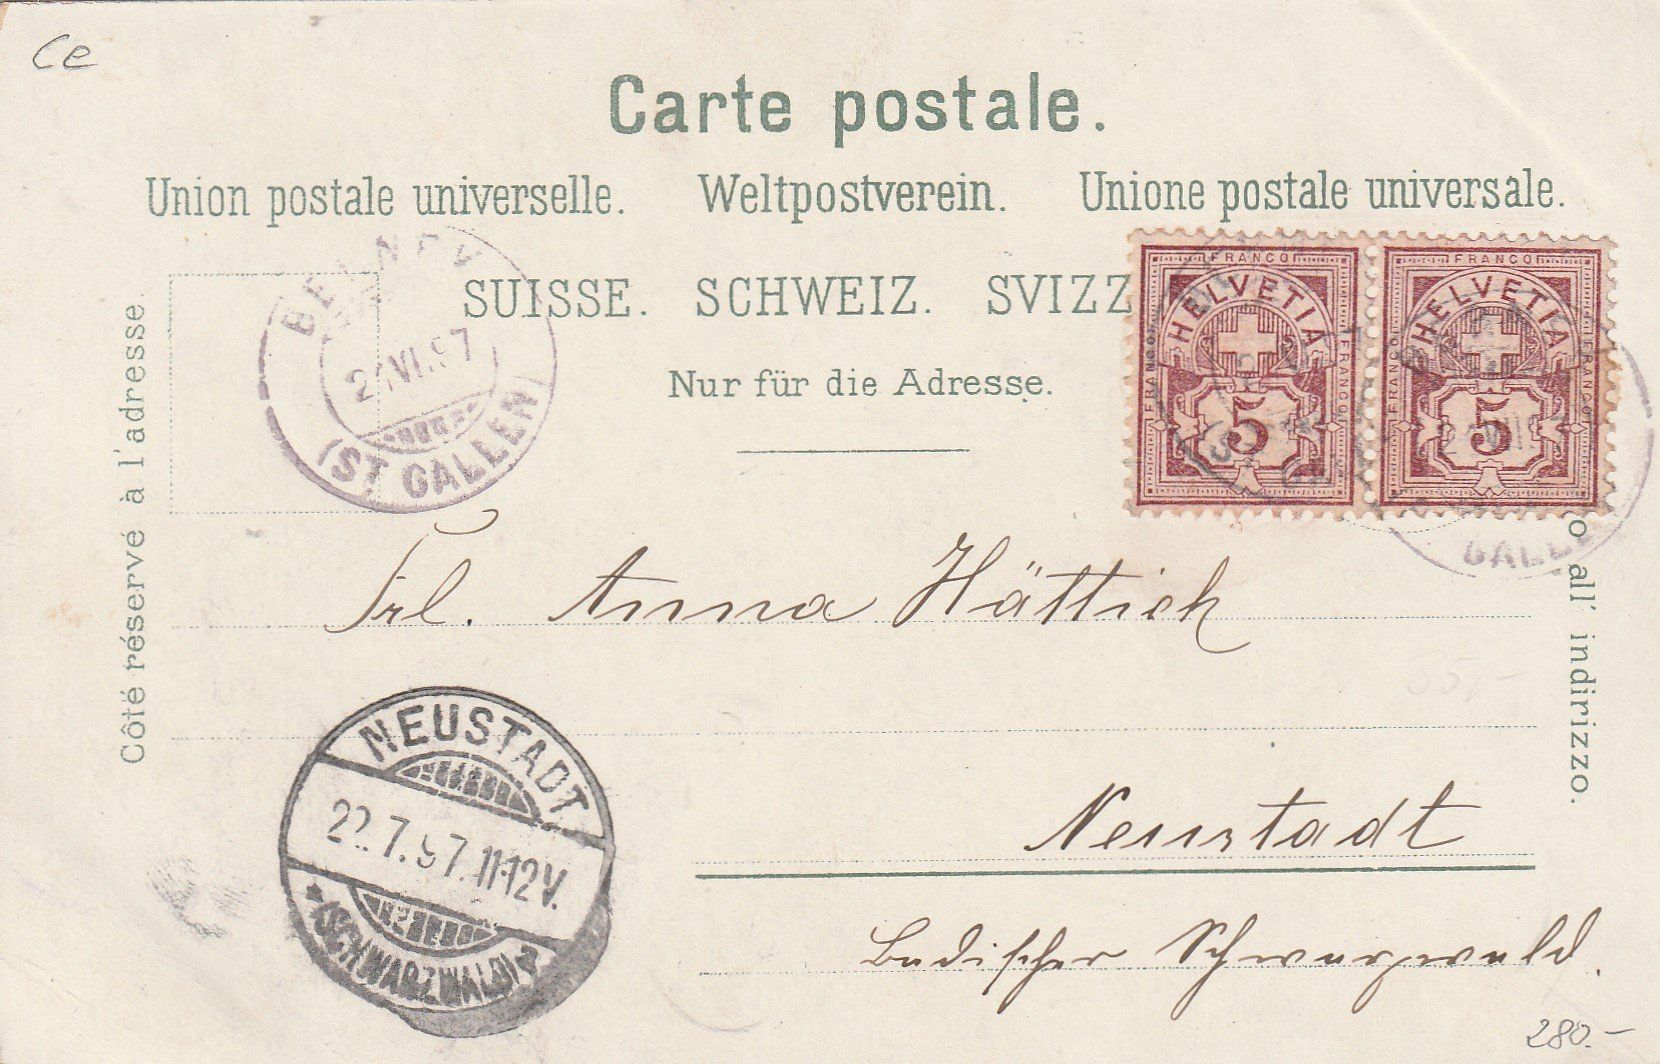 Ce
Carte postale.
Union postale universelle. Weltpostverein. Unione postale universale.
SUISSE. SCHWEIZ. SVIZZ
Nur für die Adresse.
Côté réservé à l'adresse.
o all' indirizzo.
(ST. GALLEN)
FRANCO
HELVETIA
FRANCO
FRANCO
5
FRANCO
HELVETIA
FRANCO
FRANCO
5
GALLEN
Frl. Anna Hättich
Neustadt
Badischer Schwarzwald.
NEUSTADT
22.7.97.11-12V.
* (SCHWARZWALD)
280.-